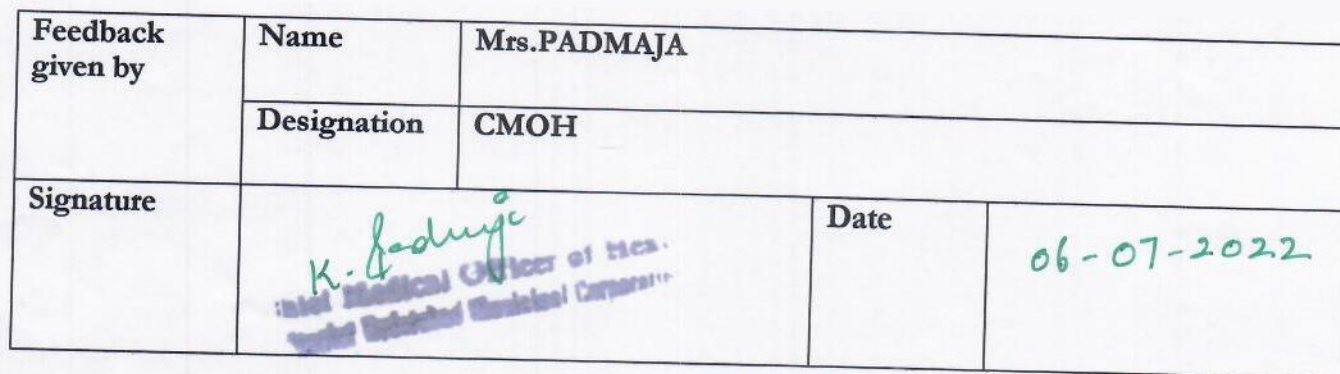 Feedback given by
Name
Mrs.PADMAJA
Designation
CMOH
Signature
K. Padmaja
Medical Officer of
Municipal
Date
06-07-2022